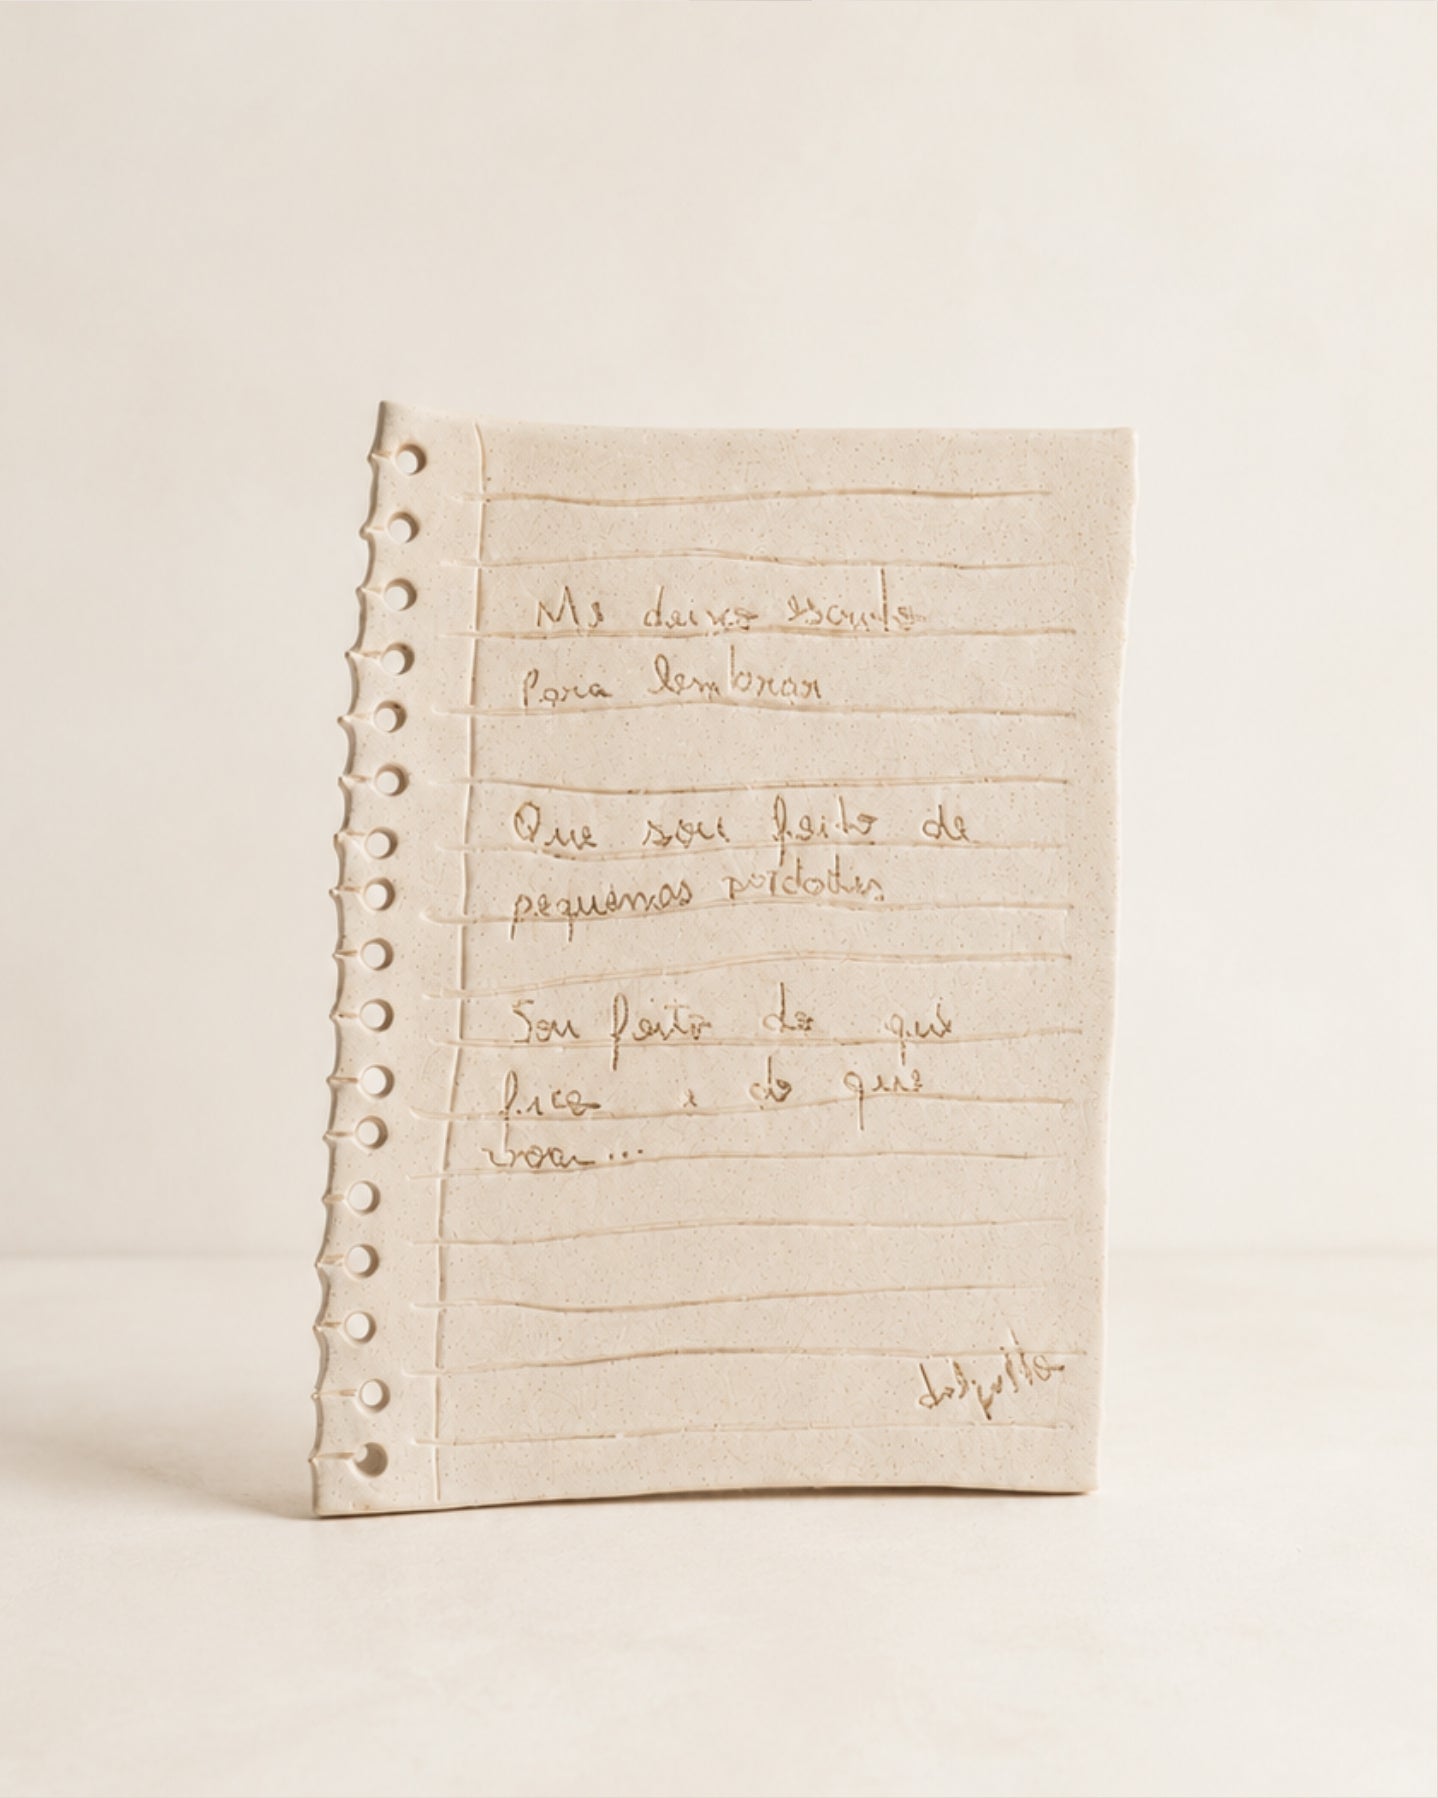 Me deixo escrito
Para lembrar
Que sou feito de
pequenas
Sou feito do que
fica e do que
voa...